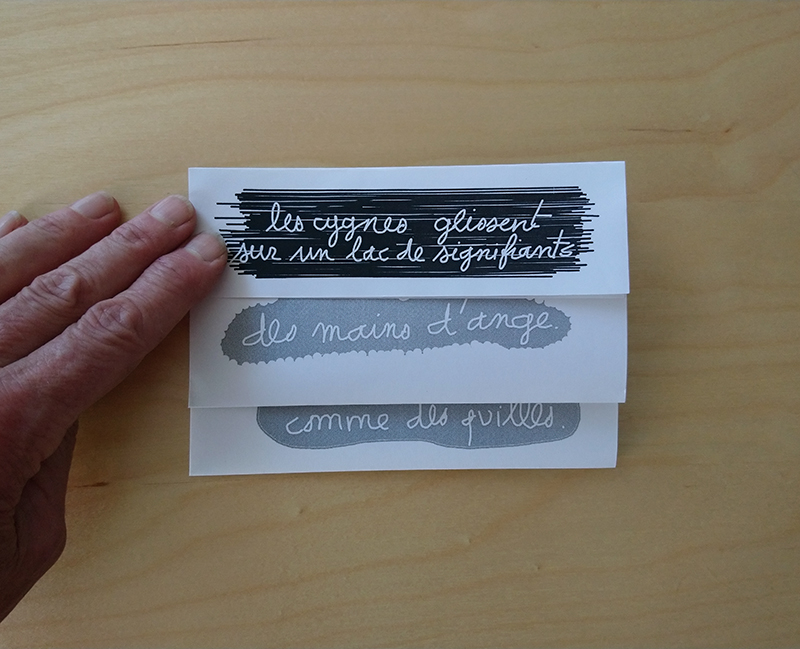 les cygnes glissent
sur un lac de signifiants
des mains d'ange.
comme des quilles.